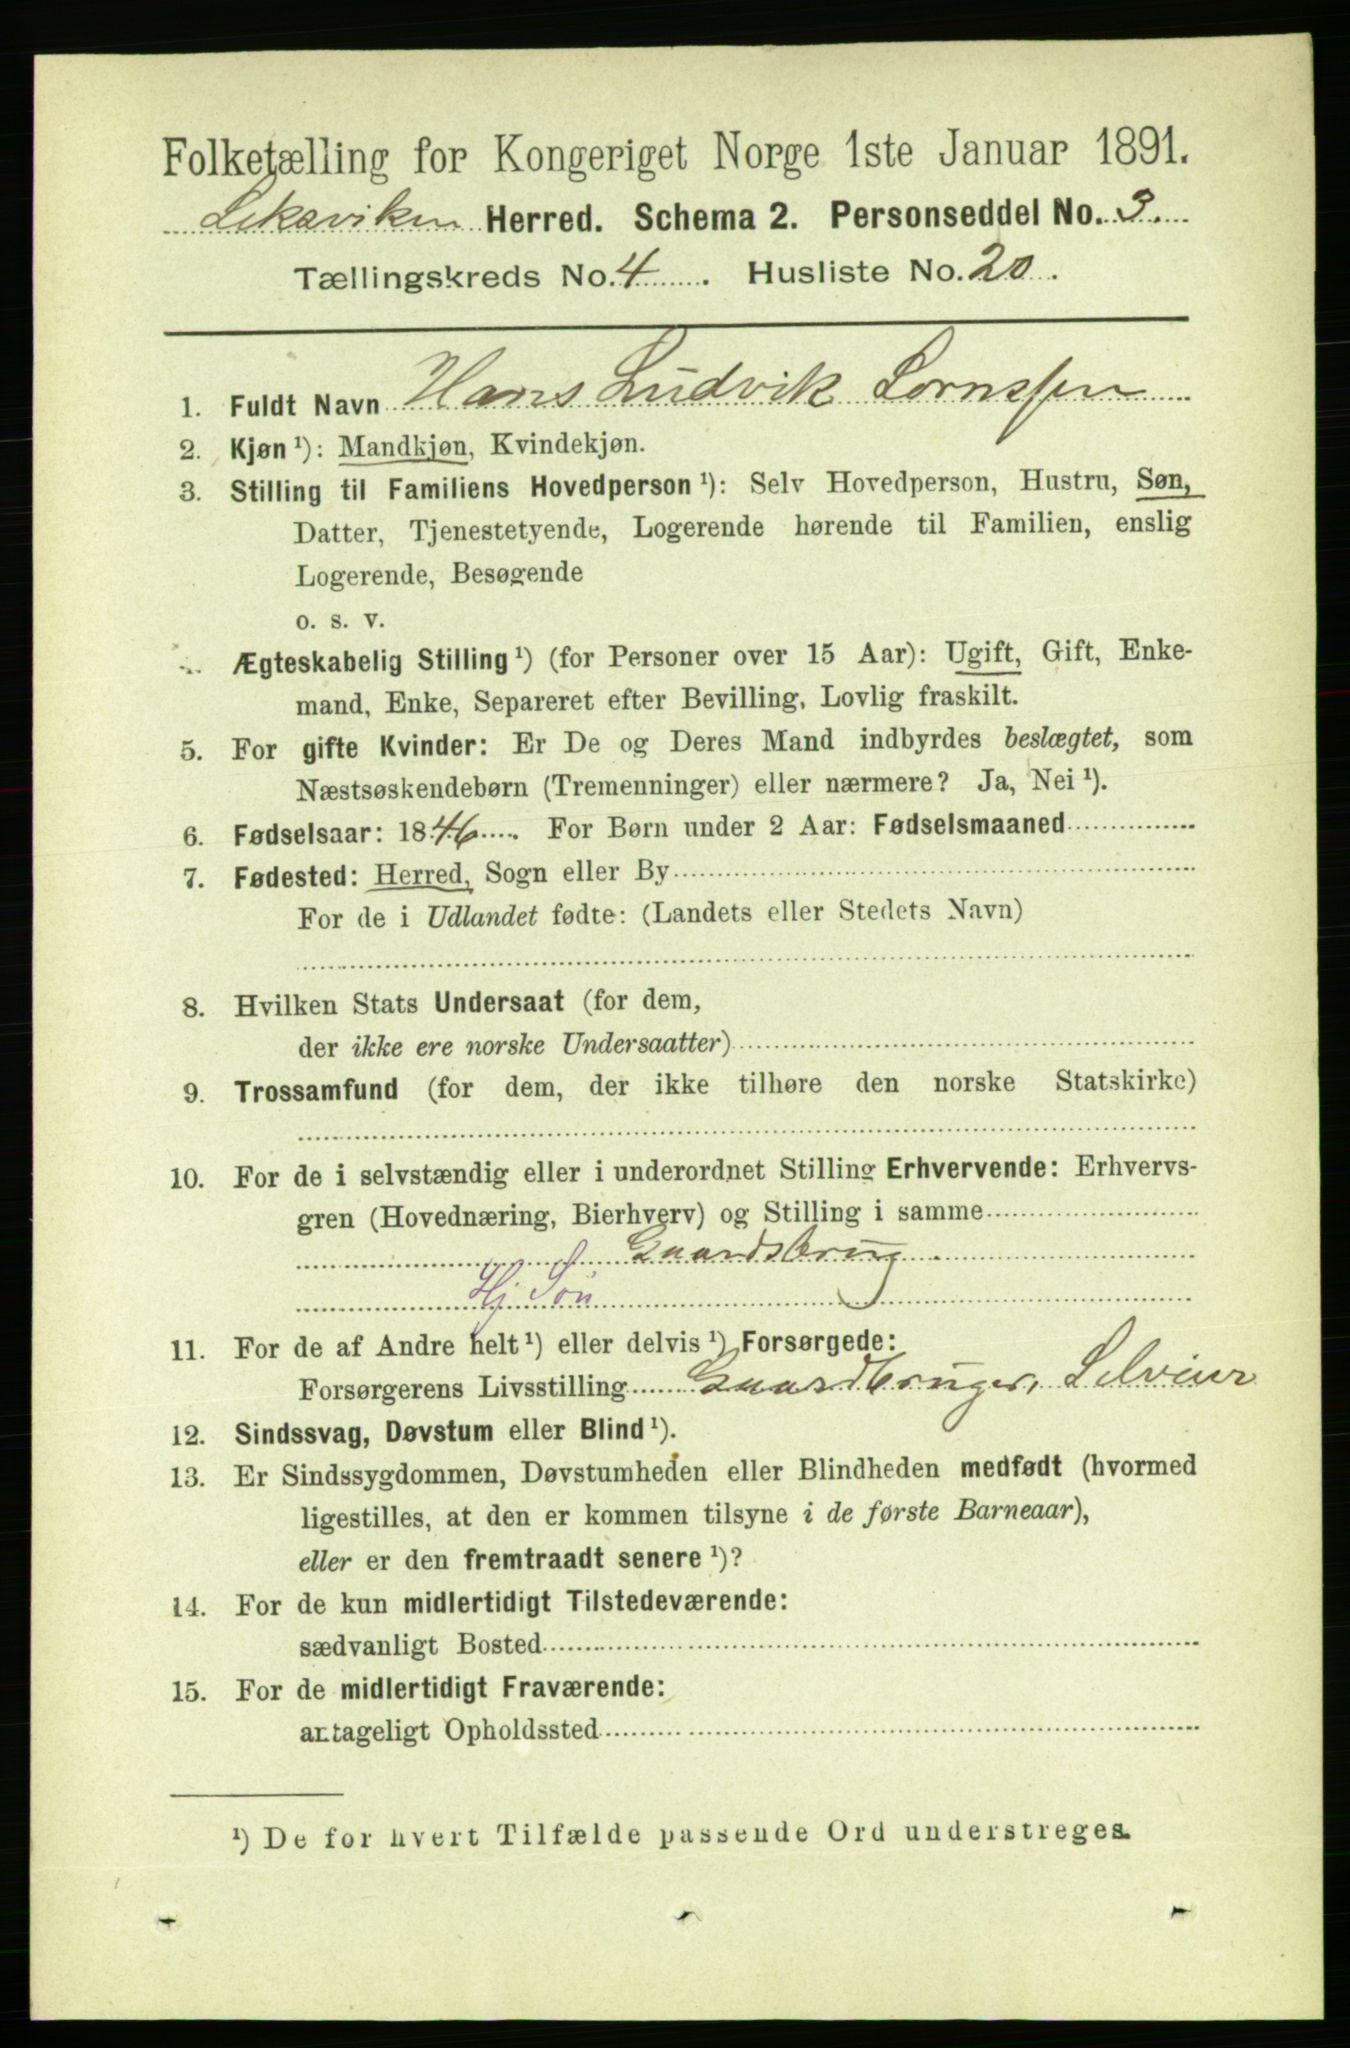 Folketælling for Kongeriget Norge 1ste Januar 1891.
Leksviken Herred. Schema 2. Personseddel No. 3.
Tællingskreds No. 4. Husliste No. 20.
1. Fuldt Navn Hans Ludvik Lornssen
2. Kjøn ¹): Mandkjøn, Kvindekjøn.
3. Stilling til Familiens Hovedperson ¹): Selv Hovedperson, Hustru, Søn,
Datter, Tjenestetyende, Logerende hørende til Familien, enslig
Logerende, Besøgende
o. s. v.
Ægteskabelig Stilling ¹) (for Personer over 15 Aar): Ugift, Gift, Enke-
mand, Enke, Separeret efter Bevilling, Lovlig fraskilt.
5. For gifte Kvinder: Er De og Deres Mand indbyrdes beslægtet, som
Næstsøskendebørn (Tremenninger) eller nærmere? Ja, Nei ¹).
6. Fødselsaar: 1846. For Børn under 2 Aar: Fødselsmaaned
7. Fødested: Herred, Sogn eller By
For de i Udlandet fødte: (Landets eller Stedets Navn)
8. Hvilken Stats Undersaat (for dem,
der ikke ere norske Undersaatter)
9. Trossamfund (for dem, der ikke tilhøre den norske Statskirke)
10. For de i selvstændig eller i underordnet Stilling Erhvervende: Erhvervs-
gren (Hovednæring, Bierhverv) og Stilling i samme
Gaardsbrug.
Hj Søn
11. For de af Andre helt ¹) eller delvis ¹) Forsørgede:
Forsørgerens Livsstilling Gaardbruger, Selveier
12. Sindssvag, Døvstum eller Blind ¹).
13. Er Sindssygdommen, Døvstumheden eller Blindheden medfødt (hvormed
ligestilles, at den er kommen tilsyne i de første Barneaar),
eller er den fremtraadt senere ¹)?
14. For de kun midlertidigt Tilstedeværende:
sædvanligt Bosted
15. For de midlertidigt Fraværende:
antageligt Opholdssted
¹) De for hvert Tilfælde passende Ord understreges.